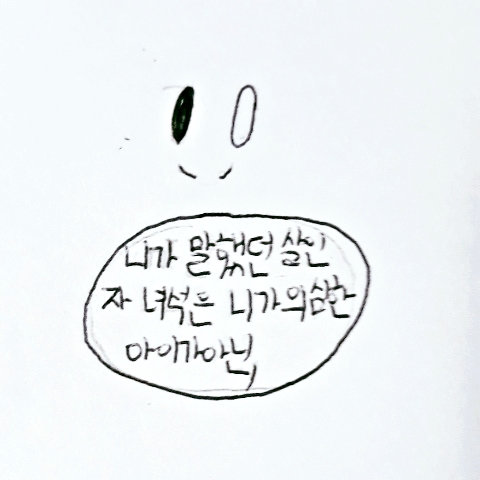 니가 말했던 살인
자 녀석은 니가의심한
아이가아닌,